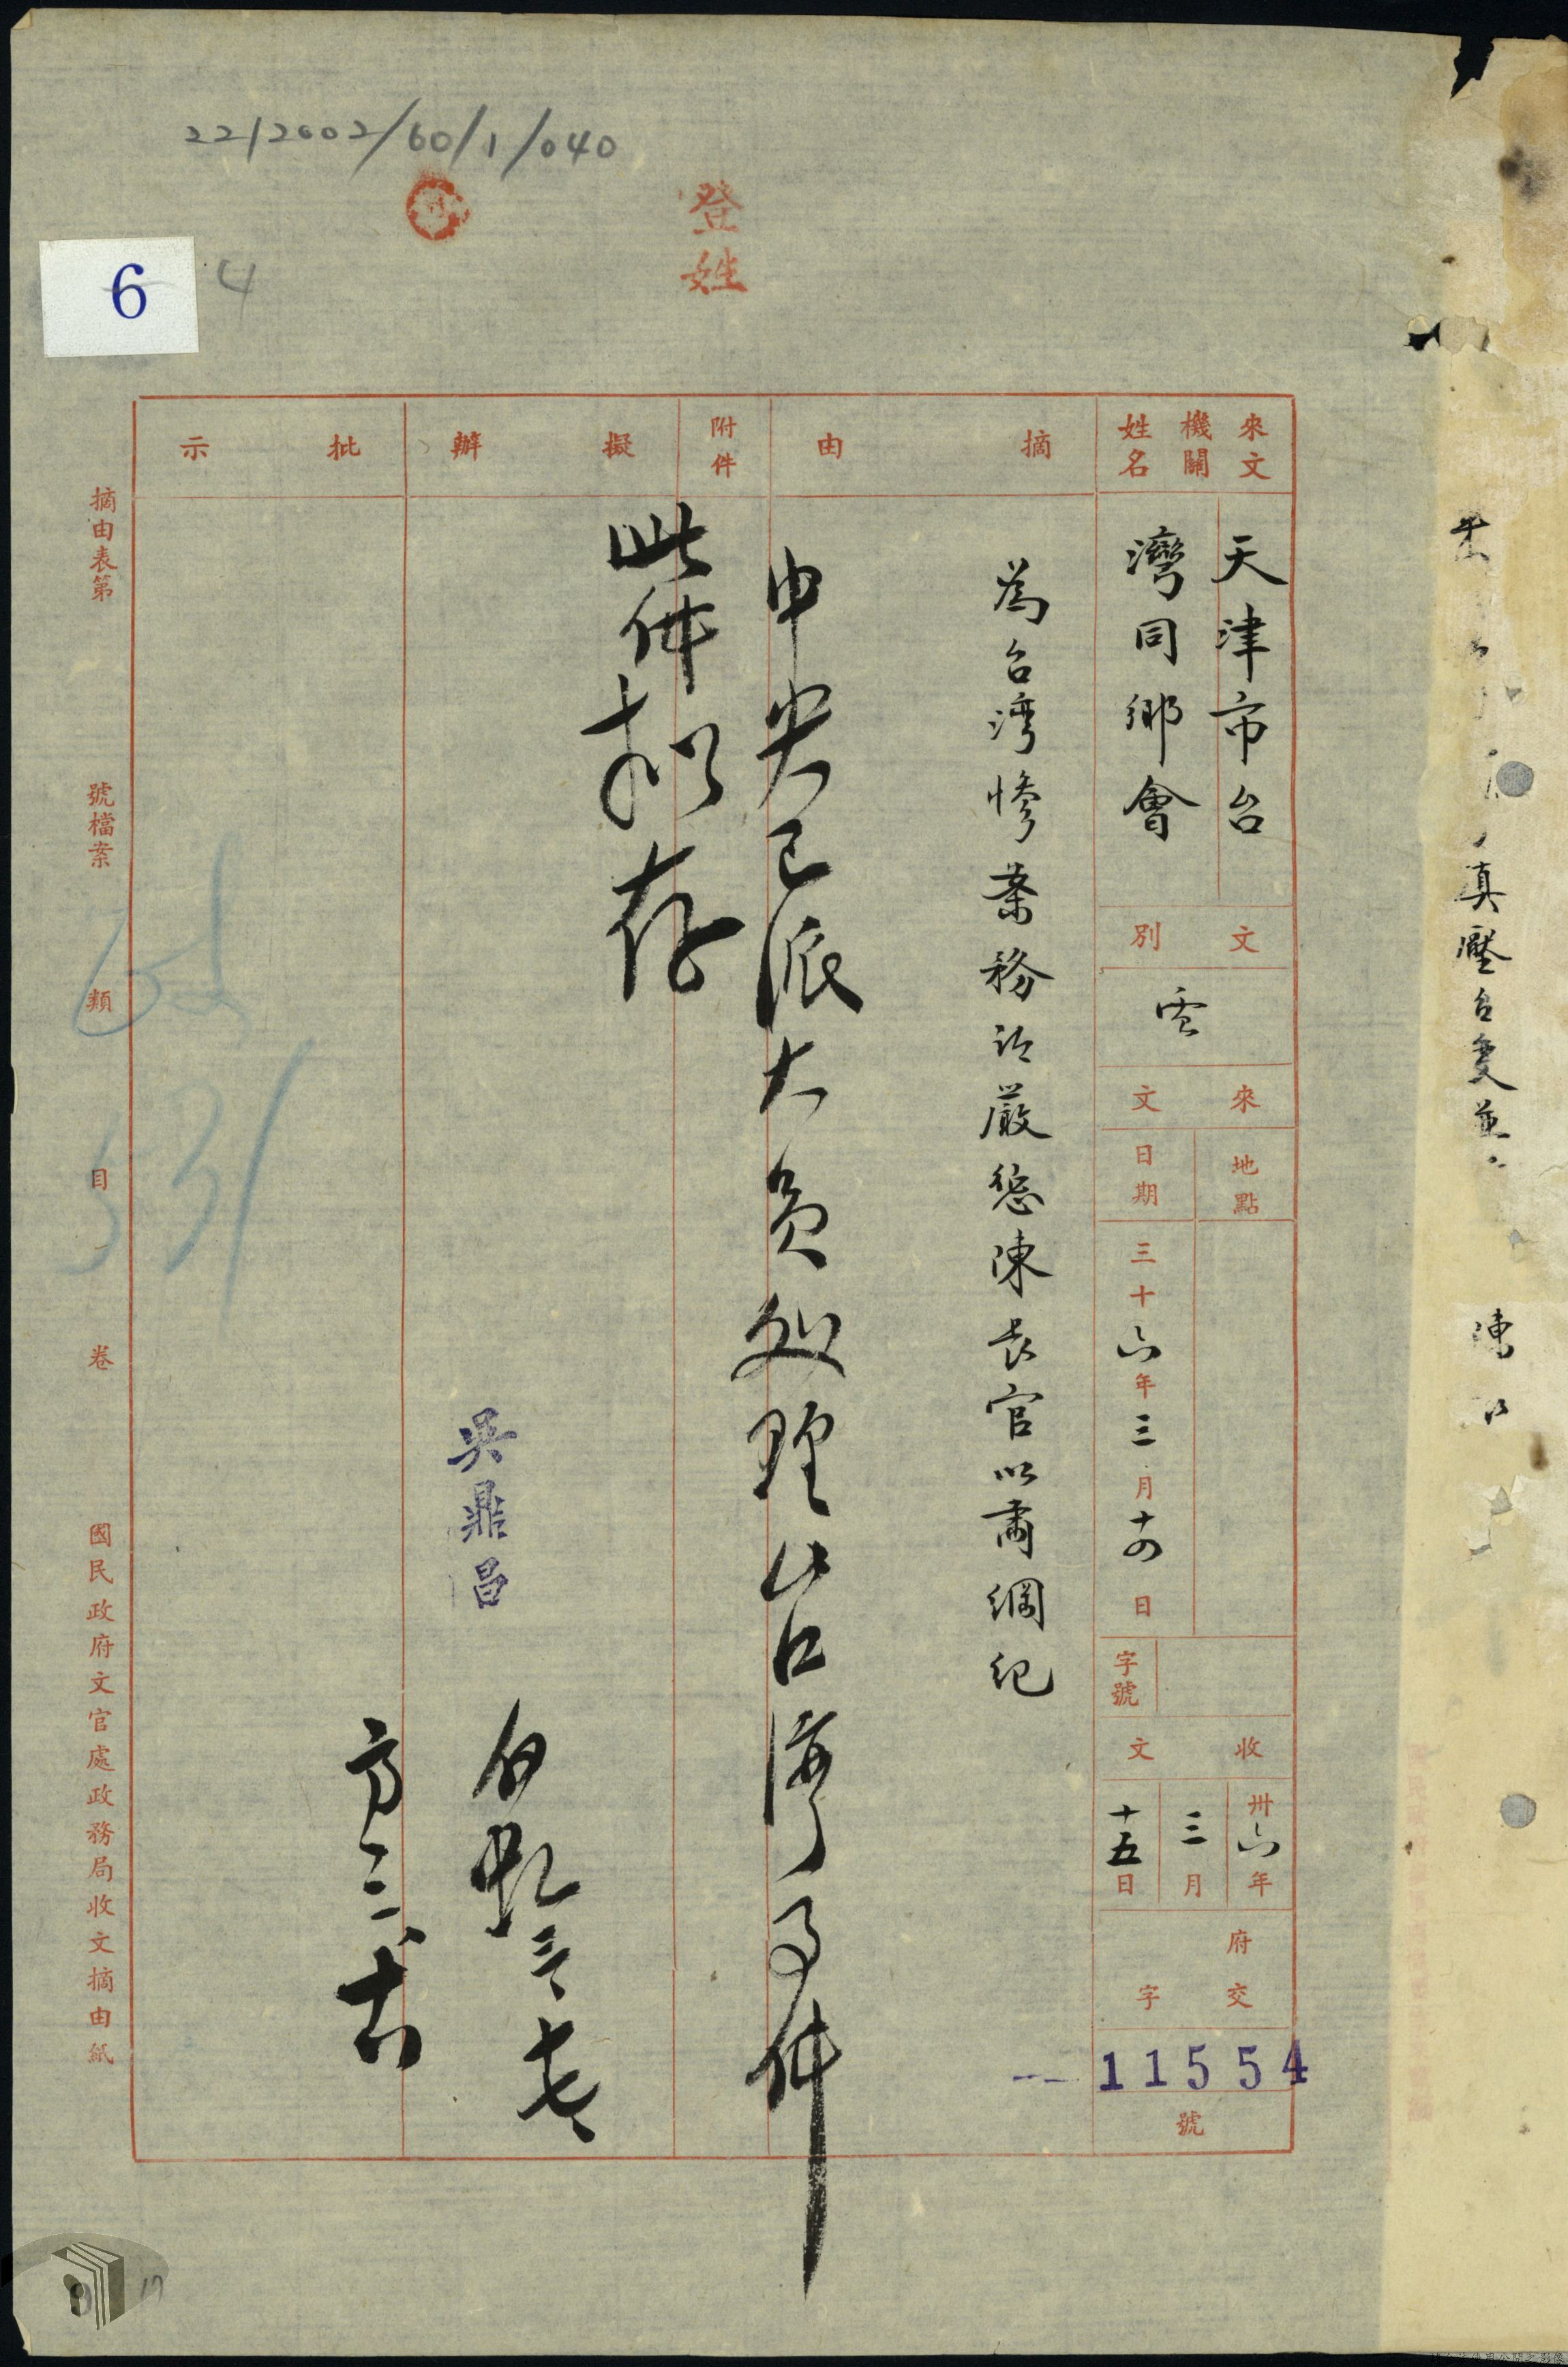 2212002/60/1/040
登
姓
6
4
來文
機關
姓名
天津市台
灣同鄉會
文別
電
來文
地點
日期
三十六年三月十四日
字號
收文
卅六年
三月
十五日
府交
字
11554
號
摘由
為台湾慘案務祈嚴懲陳長官以肅綱紀
附件
擬辦
中央已派大員処理台湾事件
此件拟存
吳鼎昌
批示
摘由表第
號檔案
類
目
卷
國民政府文官處政務局收文摘由紙
真壓台變並
17